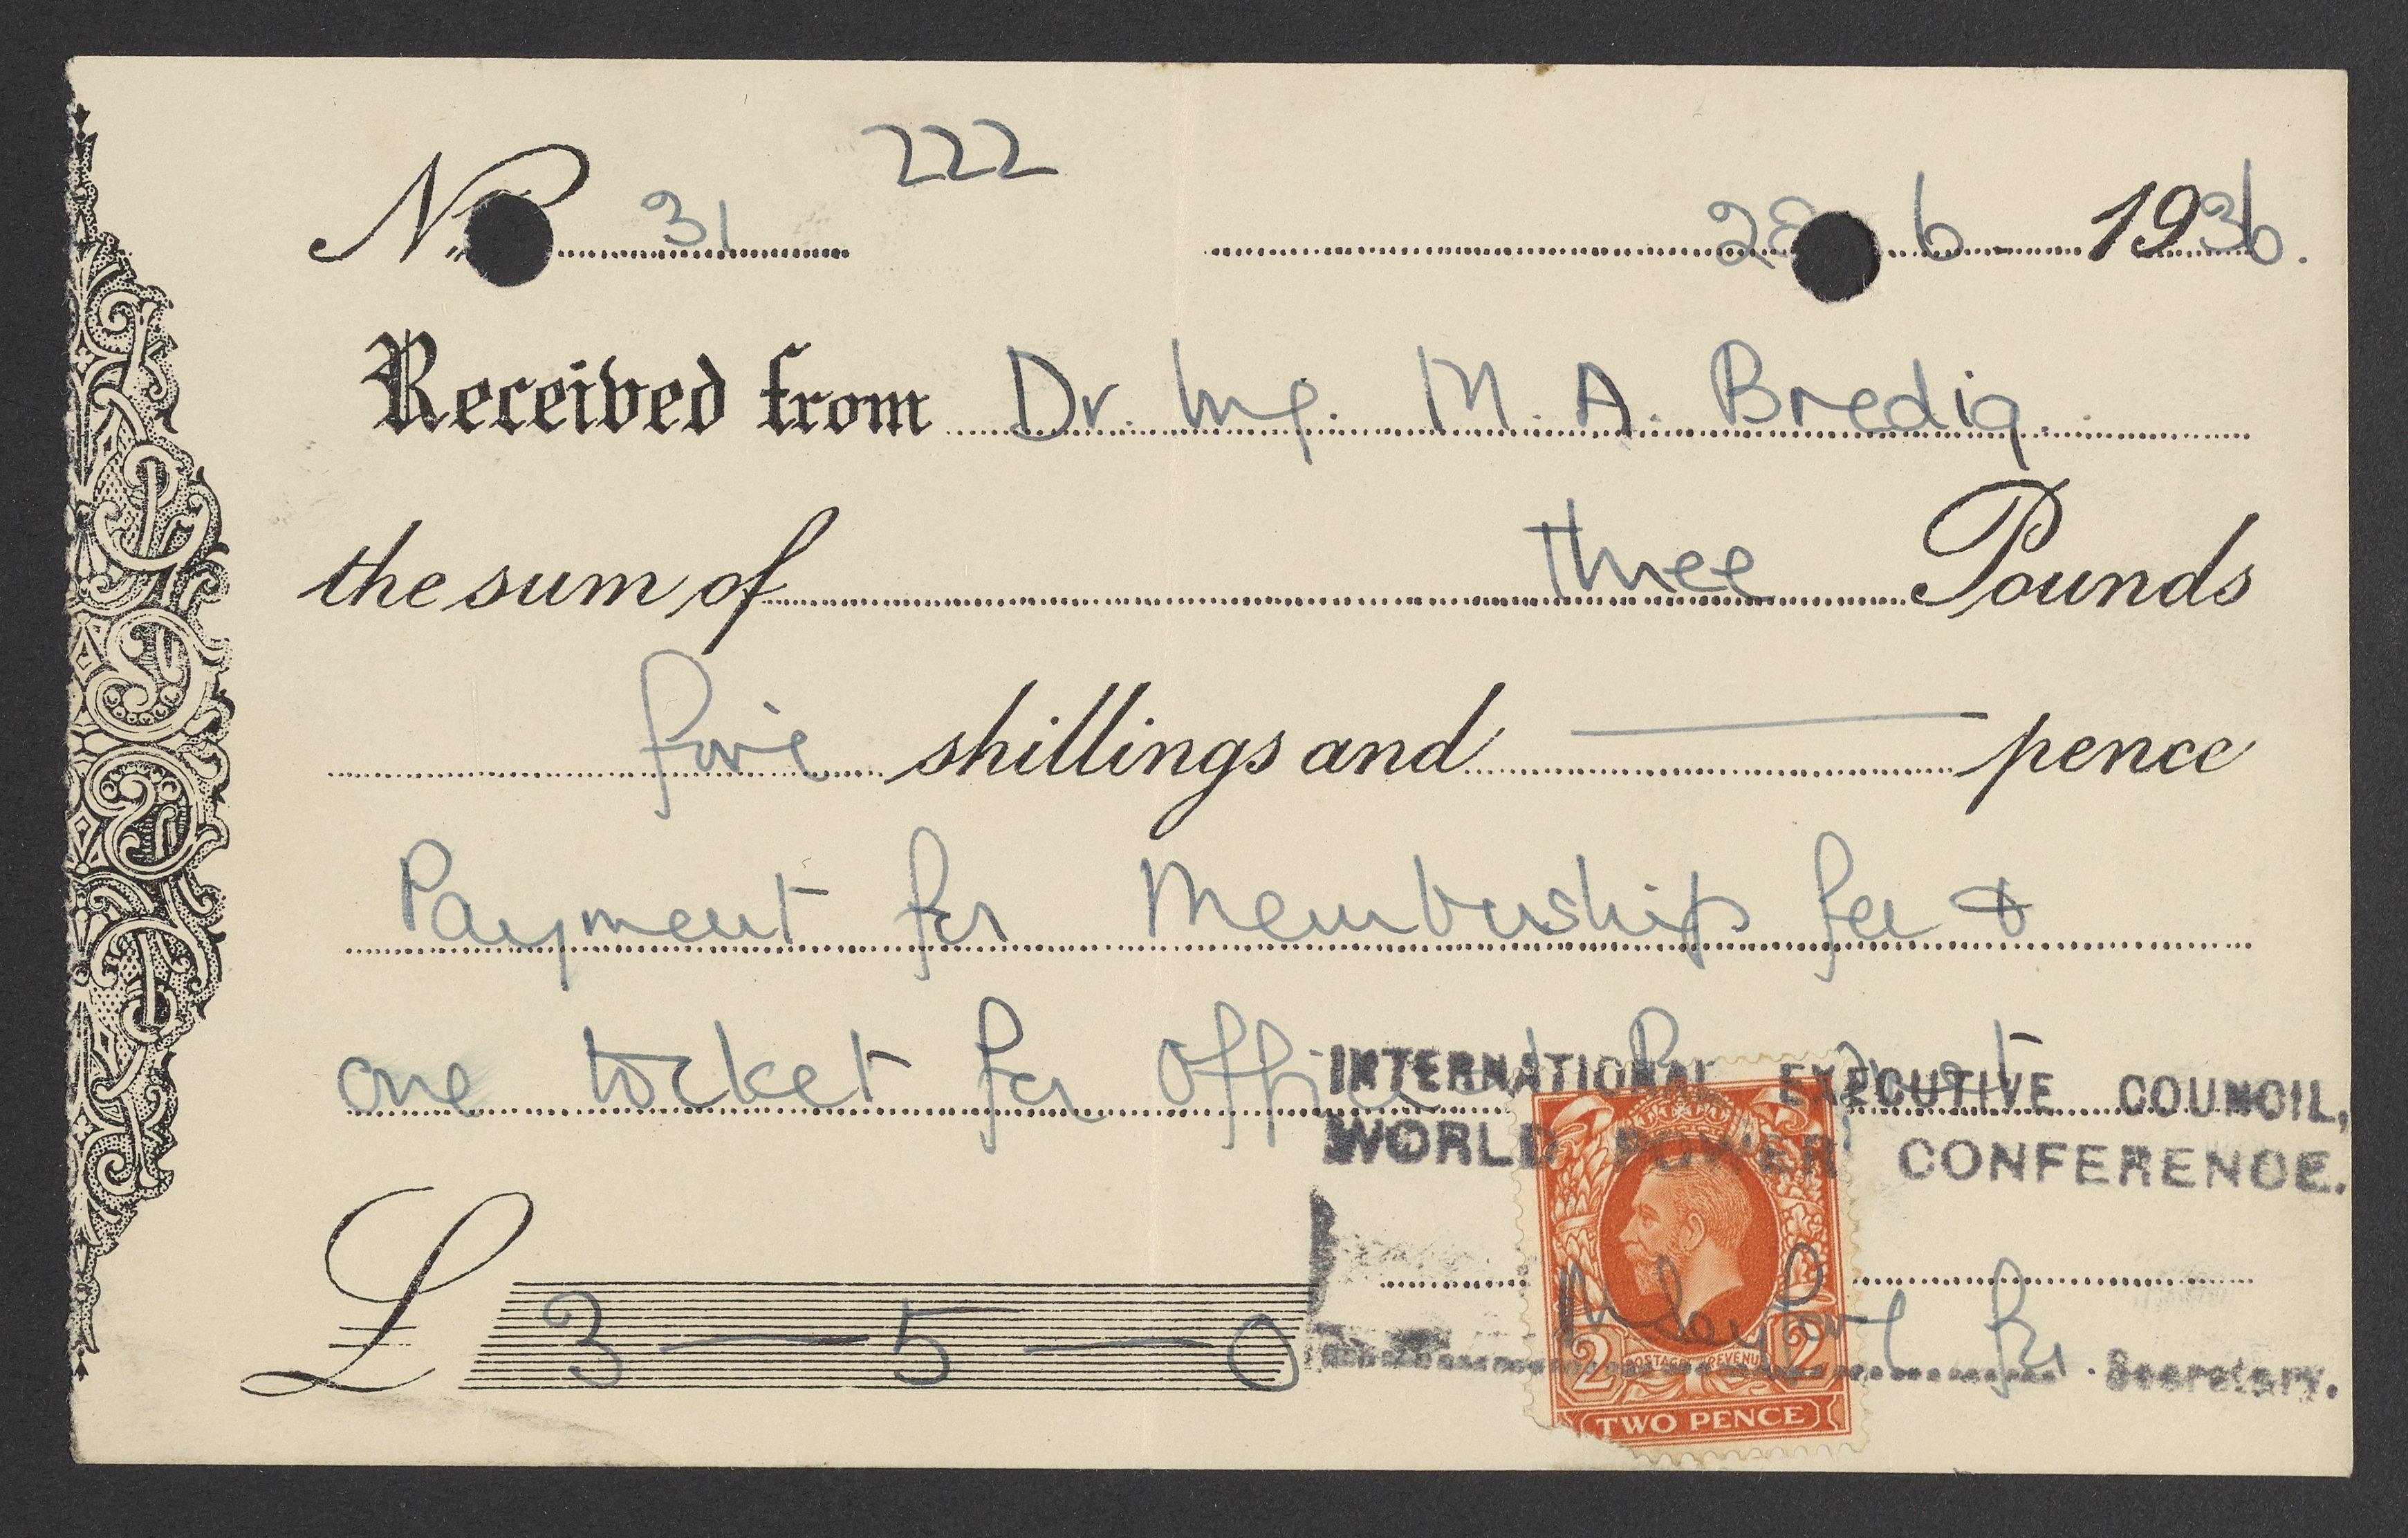 222
No 31 28 6 - 1936.
Received from Dr. Ing. M. A. Bredig.
the sum of three Pounds
five shillings and — pence
Payment for Membership fee &
one ticket for Official Banquet
INTERNATIONAL EXECUTIVE COUNCIL,
WORLD POWER CONFERENCE.
£ 3 — 5 — 0
POSTAGE REVENUE
2 2
TWO PENCE
Secretary.